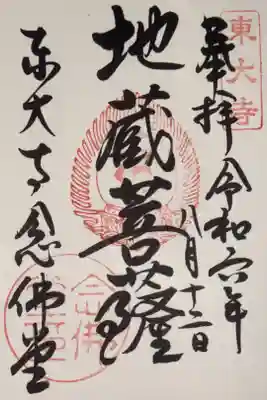 東大寺
奉拝 令和六年
八月十二日
地蔵菩薩
東大寺念佛堂